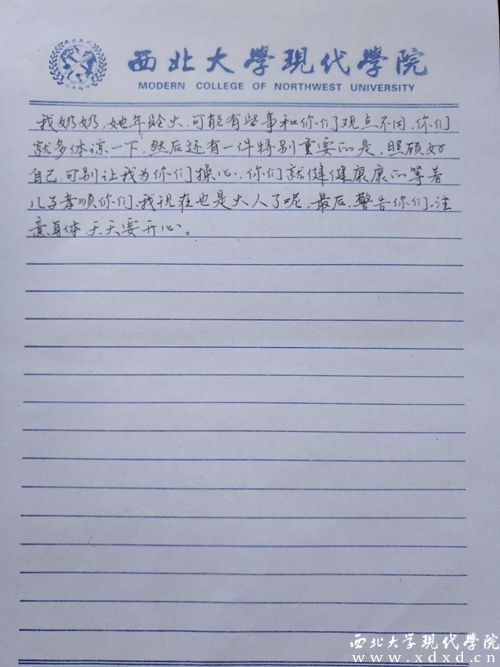 西北大學現代學院
MODERN COLLEGE OF NORTHWEST UNIVERSITY
我奶奶,她年龄大,可能有些事和你们观点不同,你们
就多体谅一下,然后还有一件特别重要的是,照顾好
自己,可别让我为你们操心,你们就健健康康的等着
儿子孝顺你们,我现在也是大人了呢,最后,警告你们,注
意身体,天天要开心。
西北大学现代学院
www.xdxd.cn